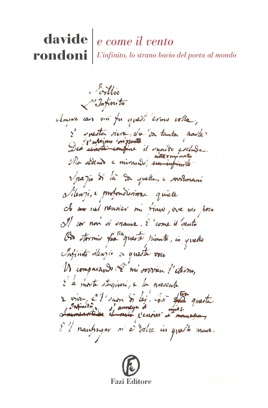 davide
rondoni
e come il vento
L'infinito, lo strano bacio del poeta al mondo
Idillio
L'Infinito
Sempre caro mi fu quest'ermo colle,
E questa siepe, che da tanta parte
il guardo esclude.
Ma sedendo e mirando,
Spazio di là da quella, e sovrumani
Silenzi, e profondissima quiete
Io nel pensier mi fingo, ove per poco
Il cor non si spaura. E come il vento
Odo stormir fra queste piante, io quello
Infinito silenzio a questa voce
Vo comparando: e mi sovvien l'eterno,
E le morte stagioni, e la presente
E viva, e 'l suon di lei. Così fra questa
E 'l naufragar m'è dolce in questo mare.
Fazi Editore